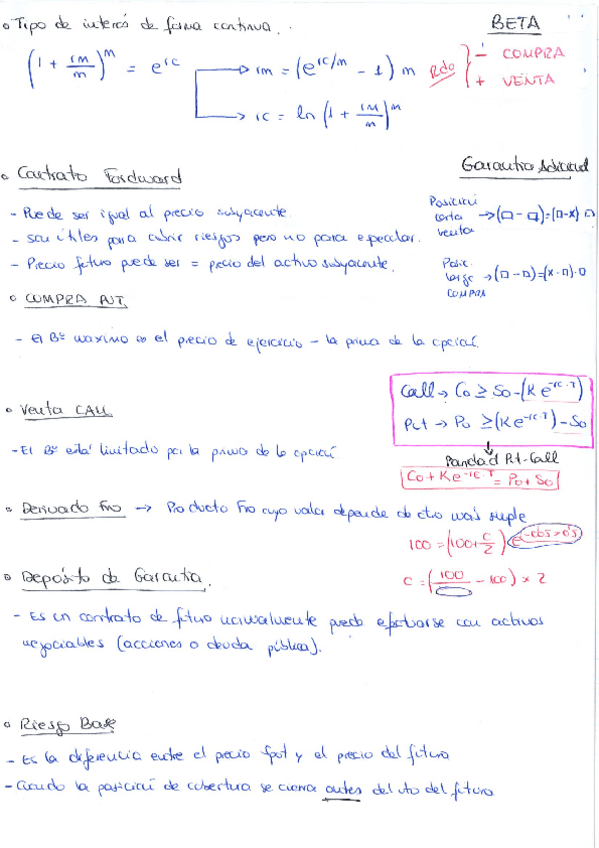 Tipo de interés de forma continua.
BETA
(1 + im/m)^m = e^ic
im = (e^ic/m - 1) m
ic = ln (1 + im/m)^m
Rdo
- COMPRA
+ VENTA
Contrato Fordward
- Puede ser igual al precio subyacente.
- Son útiles para cubrir riesgos pero no para especular.
- Precio futuro puede ser = precio del activo subyacente.
Garantía Adicional
Posición
corta
venta
→ (□ - □) = (□ - x) □
Posic.
larga
COMPRA
→ (□ - □) = (x - □) · □
COMPRA PUT.
- El Bº maximo es el precio de ejercicio - la prima de la opción.
Call → Co ≥ So - (K e^-ic·T)
Put → Po ≥ (K e^-ic·T) - So
Paridad Put-Call
Co + K e^-ic·T = Po + So
Venta CALL
- El Bº está limitado por la prima de la opción
Derivado Fro → Producto Fro cuyo valor depende de otro más simple
100 = (100 + C/2) e^-0'05×0'5
C = (100/ - 100) × 2
Depósito de Garantía.
- Es un contrato de futuro normalmente puede efectuarse con activos
negociables (acciones o deuda pública).
Riesgo Base
- Es la diferencia entre el precio spot y el precio del futuro
- Cuando la posición de cobertura se cierra antes del vto del futuro